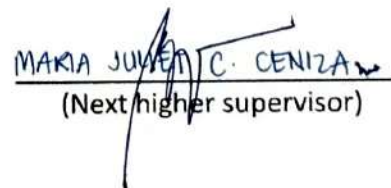 MARIA JULIET C. CENIZA
(Next higher supervisor)